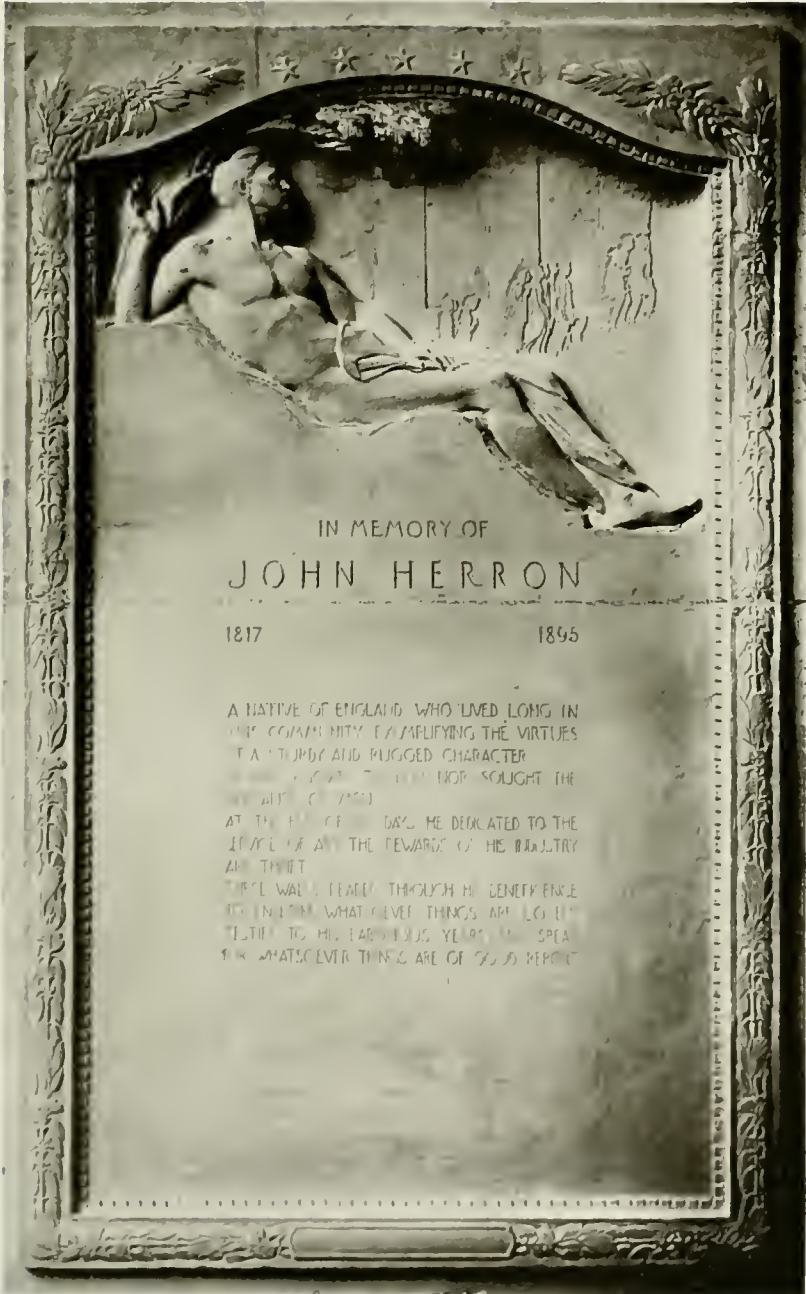 IN MEMORY OF
JOHN HERRON
1817 1895
A NATIVE OF ENGLAND WHO LIVED LONG IN
THIS COMMUNITY EXEMPLIFYING THE VIRTUES
OF A STURDY AND RUGGED CHARACTER
NOR SOUGHT THE
AT THE DAYS HE DEDICATED TO THE
SERVICE OF ART THE REWARDS OF HIS INDUSTRY
AND THRIFT
THESE WALLS REARED THROUGH HIS BENEFICENCE
TO ENSHRINE WHATSOEVER THINGS ARE LOVELY
TESTIFY TO HIS LABORIOUS YEARS AND SPEAK
FOR WHATSOEVER THINGS ARE OF GOOD REPORT